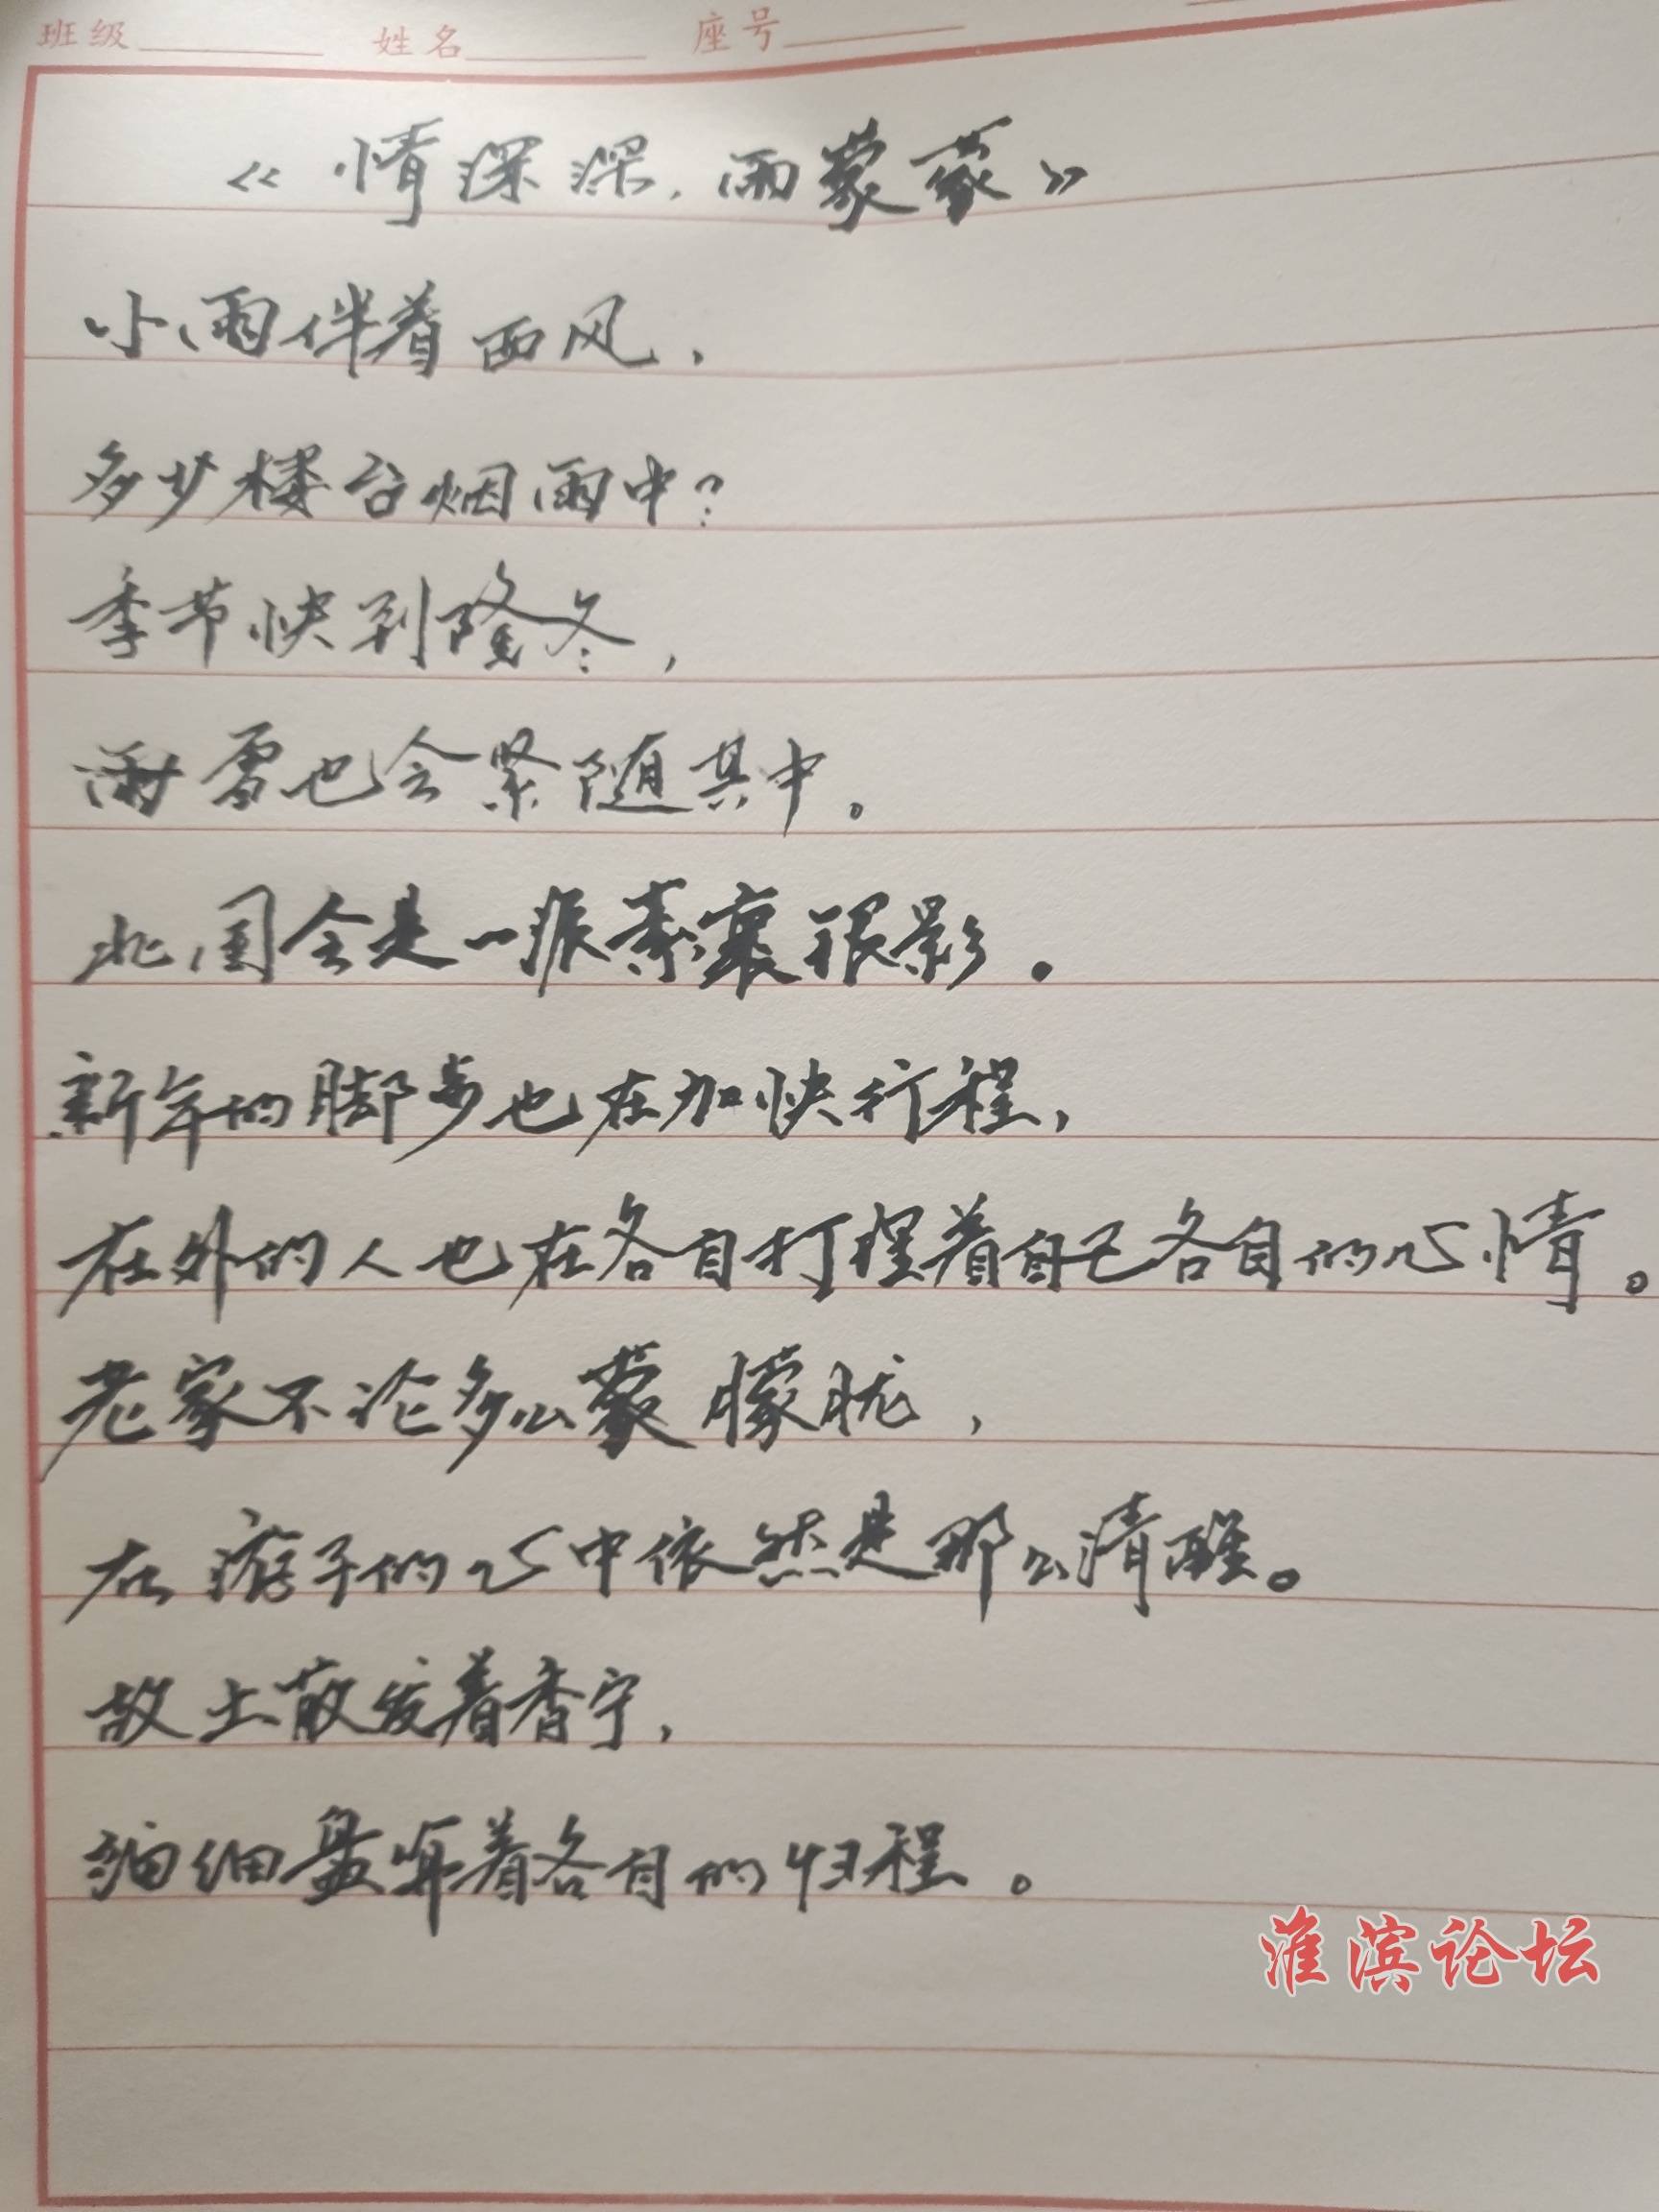 班级 姓名 座号
《情深深,雨蒙蒙》
小雨伴着西风,
多少楼台烟雨中?
季节快到隆冬,
雨雪也会紧随其中。
北国会是一派素裹银影。
新年的脚步也在加快行程,
在外的人也在各自打理着自己各自的心情。
老家不论多么蒙朦胧,
在游子的心中依然是那么清醒。
故土散发着香宁,
细细盘算着各自的归程。
淮滨论坛